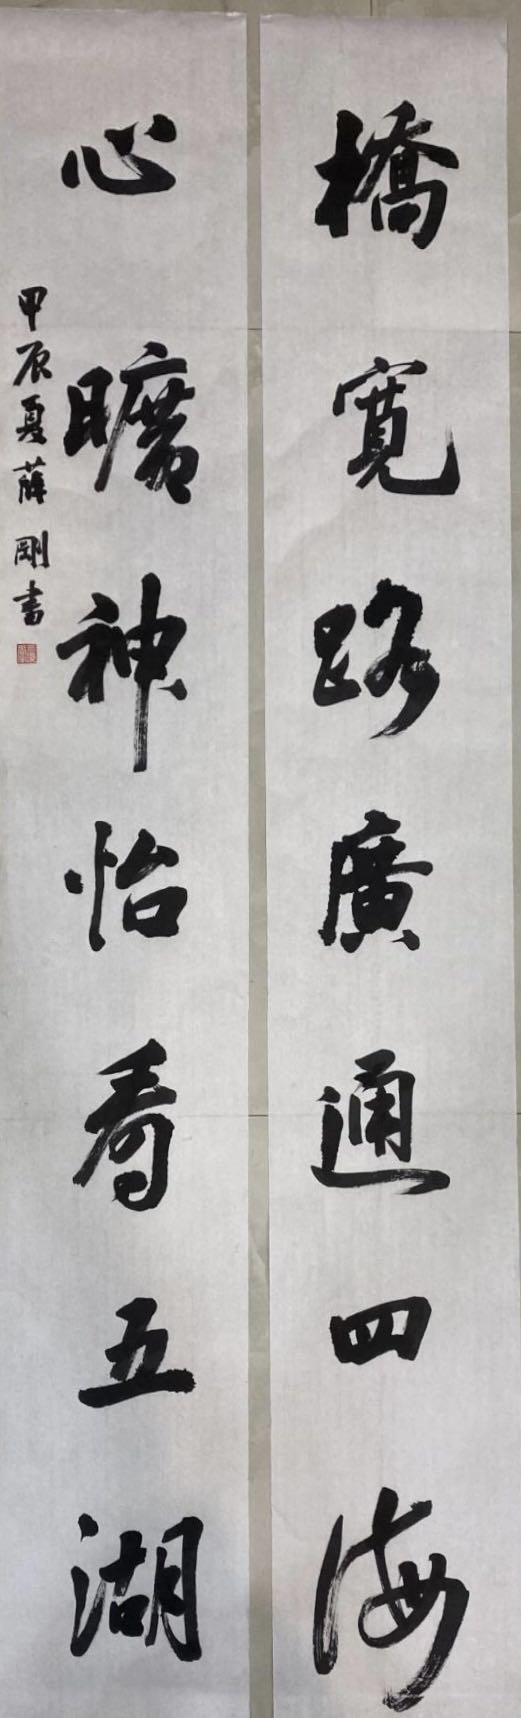 橋寬路廣通四海
心曠神怡看五湖
甲辰夏薛剛書